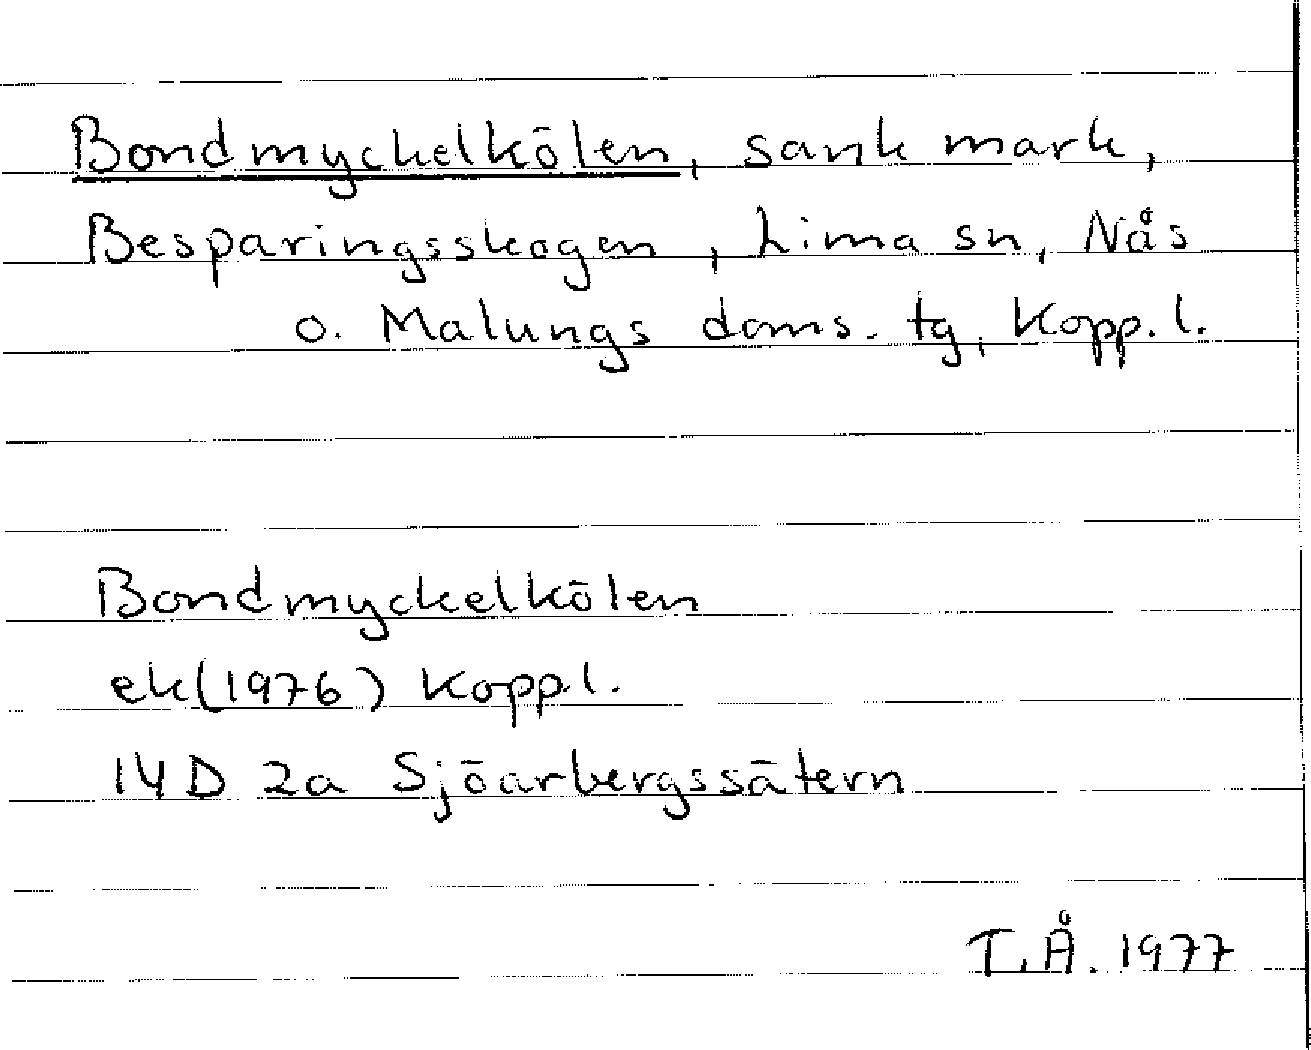 Bondmyckelkölen, sank mark,
Besparingsskogen, Lima sn, Nås
o. Malungs doms. tg, Kopp. l.
Bondmyckelkölen
ek(1976) Kopp.l.
14D 2a Sjöarbergssätern
T.Å. 1977